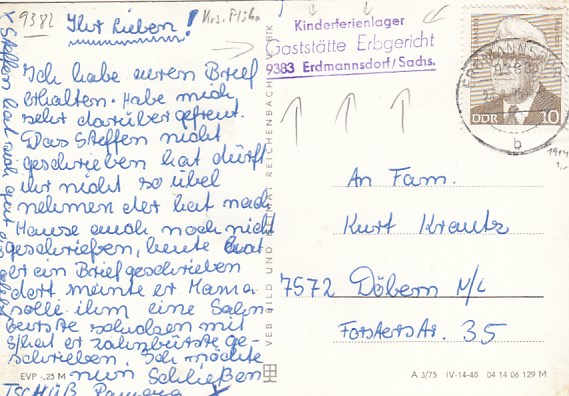 9382 Krs. Flöha
Ihr Lieben!
Ich habe euren Brief
erhalten. Habe mich
sehr darüber gefreut.
Das Steffen nicht
geschrieben hat dürft
ihr nicht so übel
nehmen der hat nach
Hause auch noch nicht
geschrießen, heute hat
er ein Brief geschrieben
dort meinte er Mama
solle ihm eine Sahn
bürste schicken mit
S/hat er zahnbürste ge-
schrieben. Ich möchte
nun Schließen
TSCHÜß Ramona
x Steffen hat sich
EVP -,25 M
VEB BILD UND HEIMAT REICHENBACH
Kinderferienlager
Gaststätte Erbgericht
9383 Erdmannsdorf/Sachs.
ERDMANNSDORF
b
DDR 10
An Fam.
Kurt Krautz
7572 Döbern N/L
Forsterstr. 35
A 3/75 IV-14-48 04 14 06 129 M